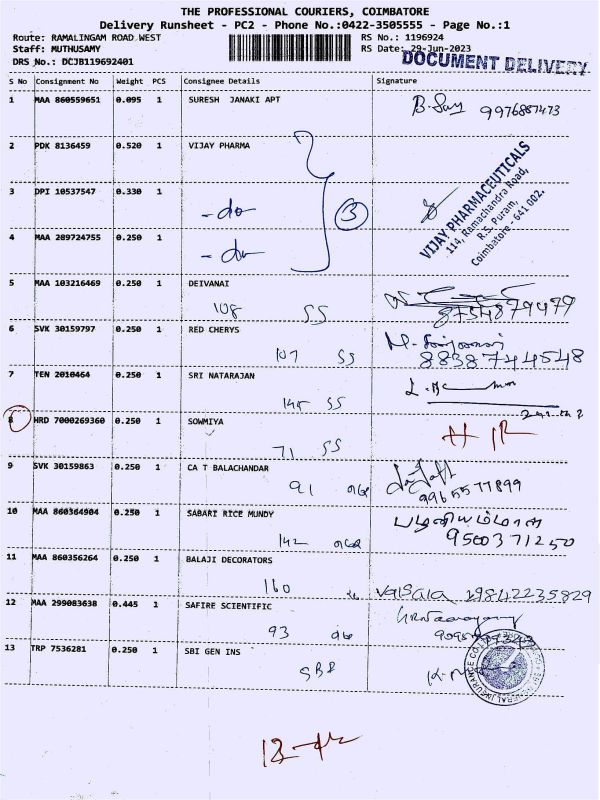 THE PROFESSIONAL COURIERS, COIMBATORE
Delivery Runsheet - PC2 - Phone No.:0422-3505555 - Page No.:1
Route: RAMALINGAM ROAD WEST RS No.: 1196924
Staff: MUTHUSAMY RS Date: 29-Jun-2023
DRS No.: DCJB119692401 DOCUMENT DELIVERY
S No Consignment No Weight PCS Consignee Details Signature
1 MAA 860559651 0.095 1 SURESH JANAKI APT
2 PDK 8136459 0.520 1 VIJAY PHARMA
3 DPI 10537547 0.330 1 -do
3
VIJAY PHARMACEUTICALS
114, Ramachandra Road,
R.S. Puram,
Coimbatore - 641 002.
4 MAA 289724755 0.250 1 -do
5 MAA 103216469 0.250 1 DEIVANAI
108 SS
6 SVK 30159797 0.250 1 RED CHERYS
107 SS 8838744548
7 TEN 2010464 0.250 1 SRI NATARAJAN
SS
8 HRD 7000269360 0.250 1 SOWMIYA
71 SS
9 SVK 30159863 0.250 1 CA T BALACHANDAR
91 9965577899
10 MAA 860364904 0.250 1 SABARI RICE MUNDY
142 9500371250
11 MAA 860356264 0.250 1 BALAJI DECORATORS
160 Valsala 9842235829
12 MAA 299083638 0.445 1 SAFIRE SCIENTIFIC
93
13 TRP 7536281 0.250 1 SBI GEN INS